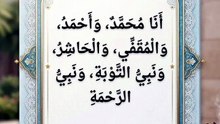 أَنَا مُحَمَّدٌ، وَأَحْمَدُ،
وَالْمُقَفِّي، وَالْحَاشِرُ،
وَنَبِيُّ التَّوْبَةِ، وَنَبِيُّ
الرَّحْمَةِ